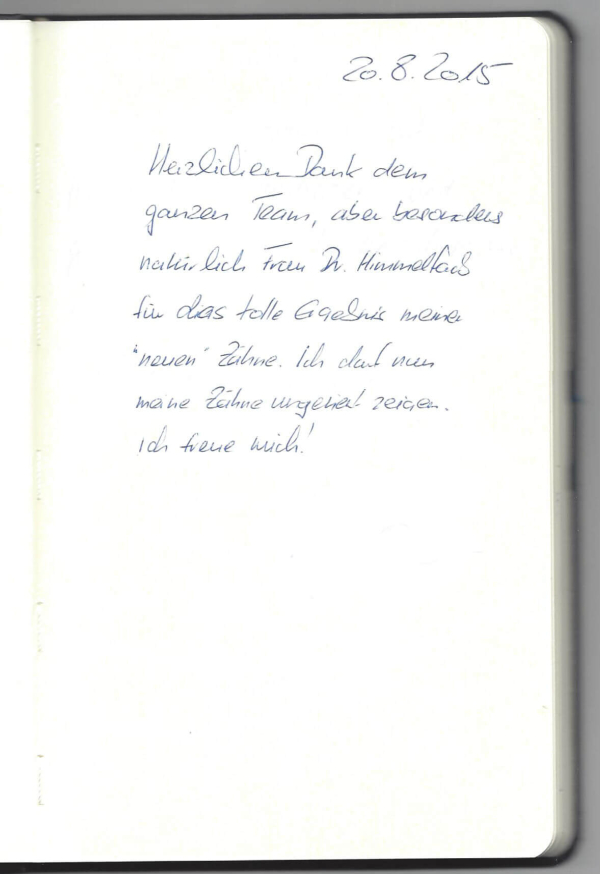 20.8.2015
Herzlichen Dank dem
ganzen Team, aber besonders
natürlich Frau Dr. Himmelfarb
für das tolle Ergebnis meiner
"neuen" Zähne. Ich darf nun
meine Zähne ungeniert zeigen.
Ich freue mich!